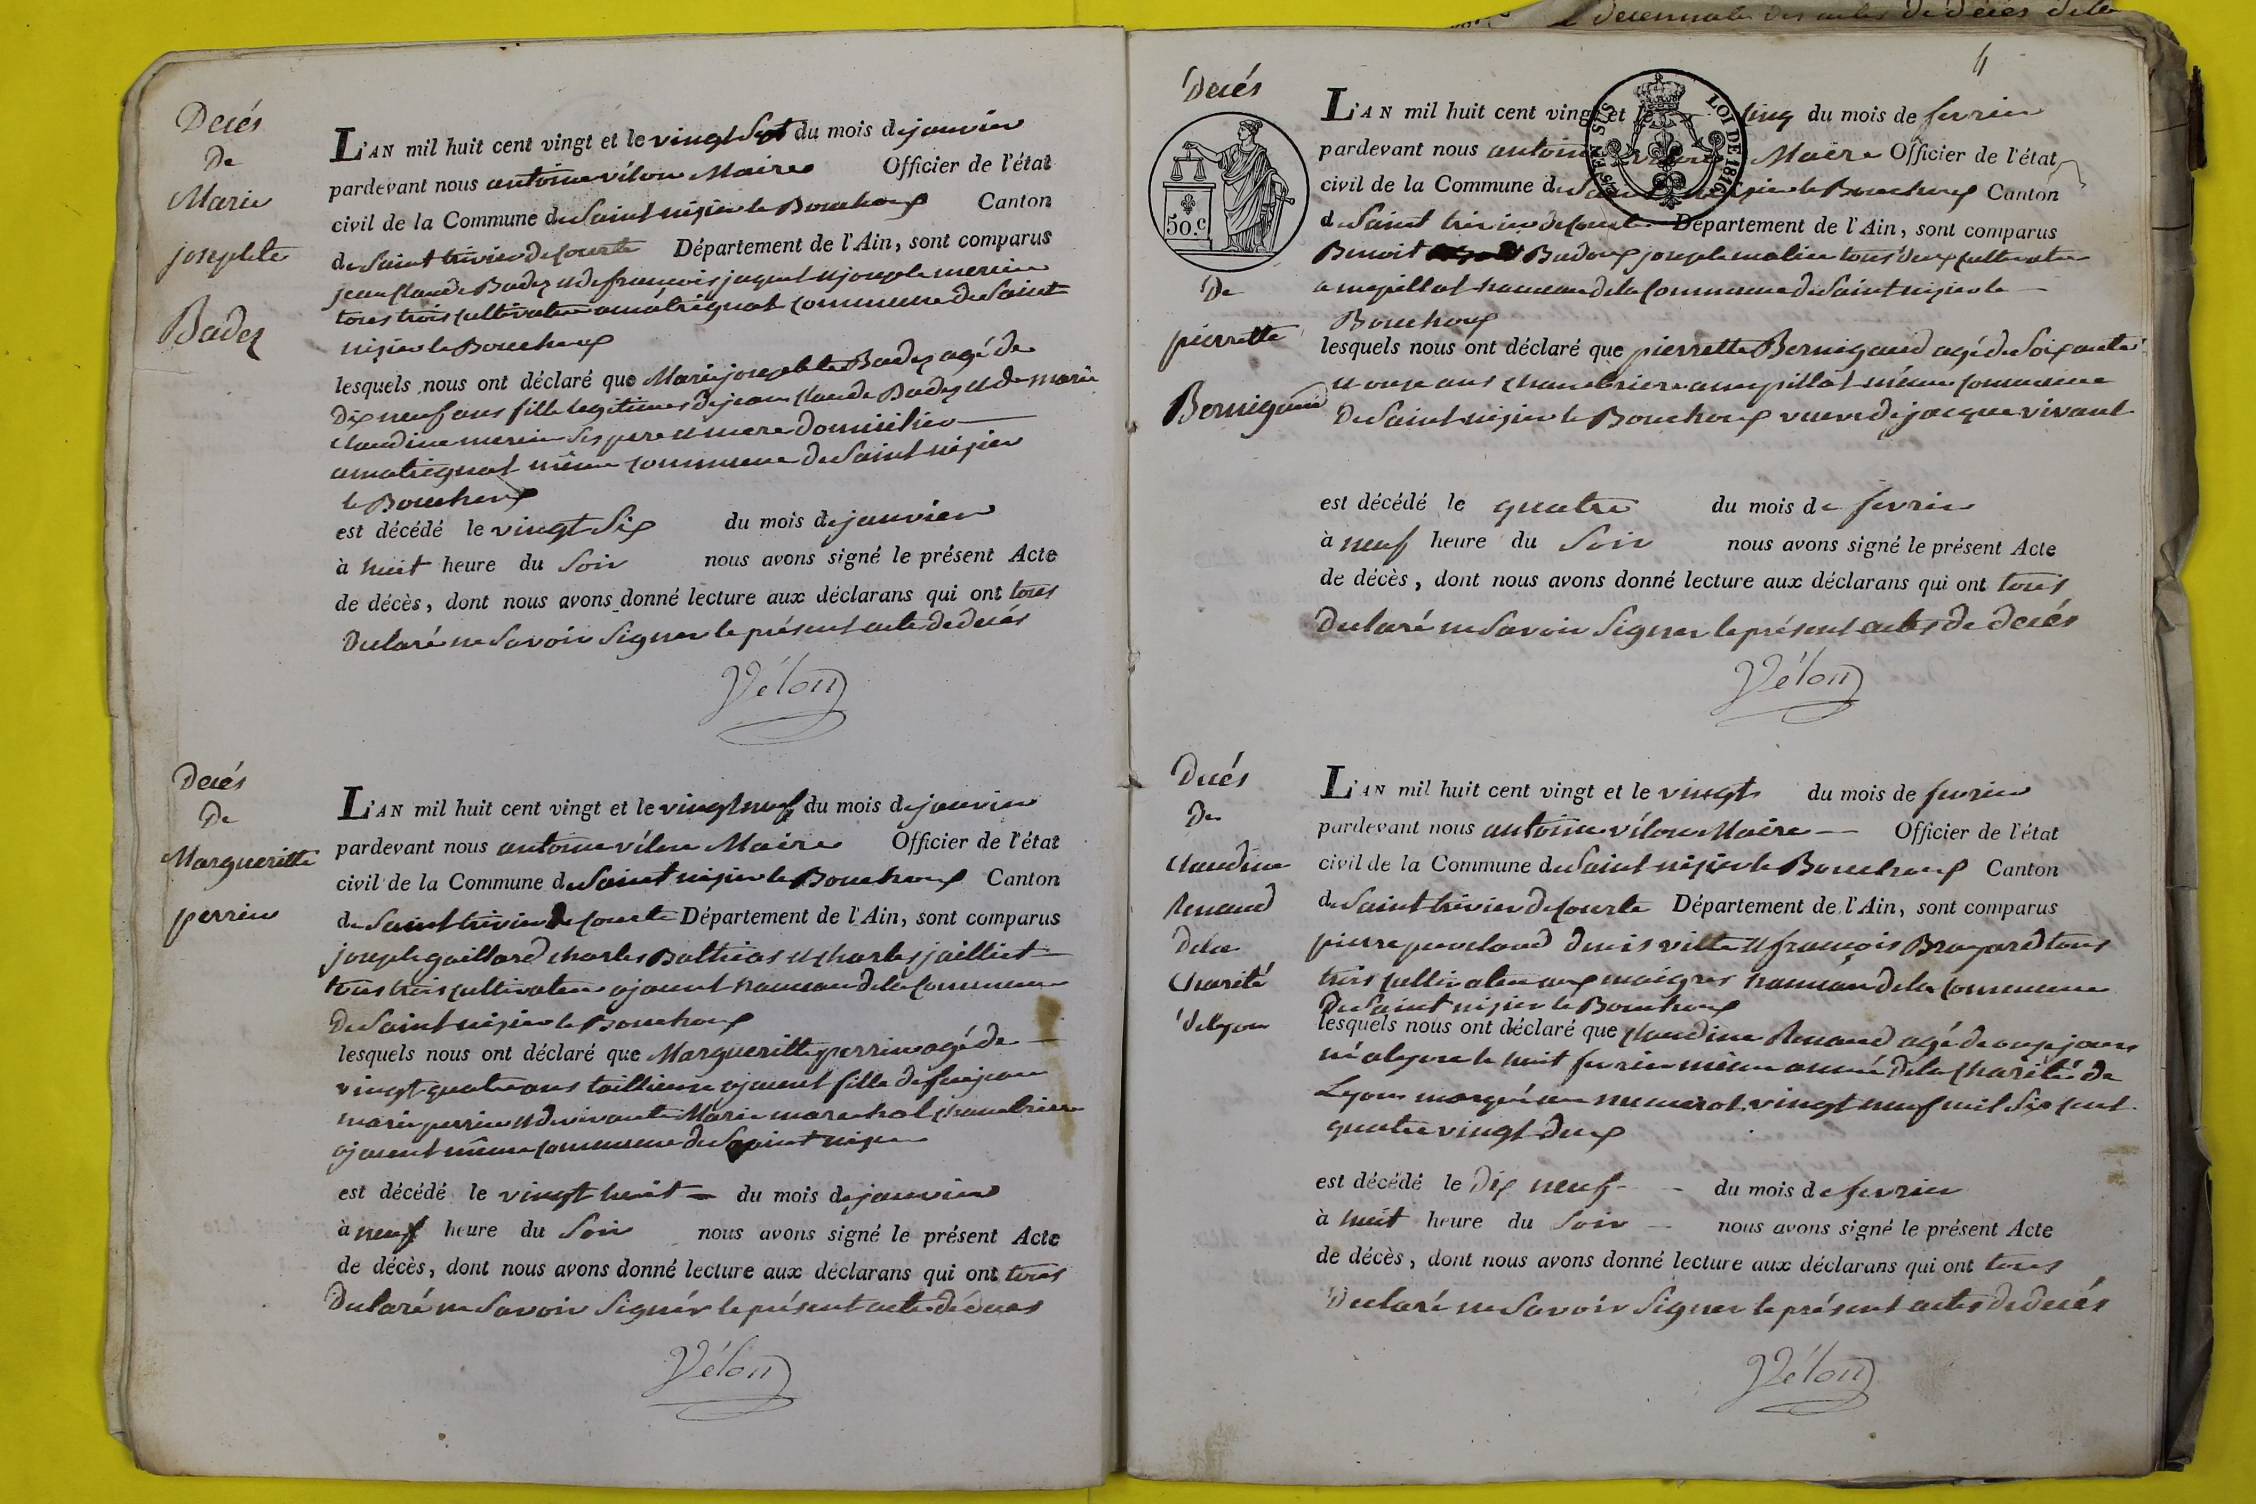 Décés
De
Marie
josephte
Badez
L'AN mil huit cent vingt et le vingt Sept du mois de janvier
pardevant nous antoine vélon Maire Officier de l'état
civil de la Commune de Saint nizier le Bouchoux Canton
de Saint trivier de Courte Département de l'Ain, sont comparus
jean Claude Badez et de françois jaquet et joseph mercier
tous trois cultivateur a commune de Saint
nizier le Bouchoux
lesquels nous ont déclaré que Marie josephte Badez agé de
Dix neuf ans fille legitime de jean Claude Badez et de marie
Claudine mercier Ses pere et mere domicilier
même commune de Saint nizier
le Bouchoux
est décédé le vingt Six du mois de janvier
à huit heure du Soir nous avons signé le présent Acte
de décès, dont nous avons donné lecture aux déclarans qui ont tous
Declaré ne Savoir Signer le présent acte de decés
Vélon
Decés
De
Margueritte
perrin
L'AN mil huit cent vingt et le vingt neuf du mois de janvier
pardevant nous antoine vélon Maire Officier de l'état
civil de la Commune de Saint nizier le Bouchoux Canton
de Saint trivier de Courte Département de l'Ain, sont comparus
joseph gaillard charles Bathias et charles jailliet
tous trois cultivateur ajouent hameau de la Commune
De Saint nizier le Bouchoux
lesquels nous ont déclaré que Margueritte perrin agé de
vingt quatre ans ajouent fille de feu jean
marie perrin et de vivante Marie marechal chambriere
ajouent même commune de Saint nizier
est décédé le vingt huit du mois de janvier
à neuf heure du Soir nous avons signé le présent Acte
de décès, dont nous avons donné lecture aux déclarans qui ont tous
Declaré ne Savoir Signér le présent acte de décés
Vélon
4
Decés
50.c
De
pierrette
Bernigaud
LOI DE 1816
L'AN mil huit cent vingt et le cinq du mois de fevrier
pardevant nous antoine vélon Maire Officier de l'état
civil de la Commune de Saint nizier le Bouchoux Canton
de Saint trivier de Courte Département de l'Ain, sont comparus
Benoit Badoux joseph tous deux cultivateur
a mepillat hameau de la Commune de Saint nizier le
Bouchoux
lesquels nous ont déclaré que pierrette Bernigaud agé de Soixante
et onze ans chambriere a mepillat même commune
De Saint nizier le Bouchoux veuve de jacque vivant
est décédé le quatre du mois de fevrier
à neuf heure du Soir nous avons signé le présent Acte
de décès, dont nous avons donné lecture aux déclarans qui ont tous
Declaré ne Savoir Signer le présent actes de decés
Vélon
Decés
De
Claudine
Renaud
de la
Charité
de lyon
L'AN mil huit cent vingt et le vingt du mois de fevrier
pardevant nous antoine vélon Maire Officier de l'état
civil de la Commune de Saint nizier le Bouchoux Canton
de Saint trivier de Courte Département de l'Ain, sont comparus
pierre denis ville et françois tous
trois cultivateur aux maigres hameau de la Commune
De Saint nizier le Bouchoux
lesquels nous ont déclaré que Claudine Renaud agé de onze jours
né a lyon le huit fevrier même année de la charité de
Lyon marqué au numerot vingt neuf mil Six cent
quatre vingt deux
est décédé le Dix neuf du mois de fevrier
à huit heure du Soir nous avons signé le présent Acte
de décès, dont nous avons donné lecture aux déclarans qui ont tous
Declaré ne Savoir Signer le présent actes de decés
Vélon